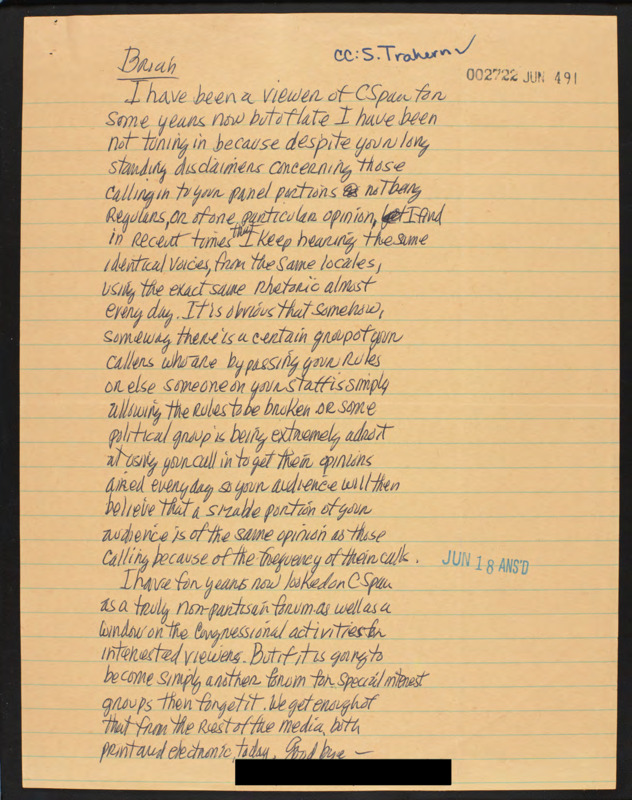 cc: S. Trahern ✓
Brian
002722 JUN 4 91
I have been a viewer of CSpan for
some years now but of late I have been
not tuning in because despite your long
standing disclaimers concerning those
calling in to your panel portions not being
Regulars, or of one particular opinion, yet I find
in recent times that I keep hearing the same
identical voices, from the same locales,
using the exact same rhetoric almost
every day. It is obvious that somehow,
someway there is a certain group of your
callers who are by passing your rules
or else someone on your staff is simply
allowing the rules to be broken or some
political group is being extremely adroit
at using your call in to get their opinions
aired every day so your audience will then
believe that a sizable portion of your
audience is of the same opinion as those
calling because of the frequency of their calls.
JUN 18 ANS'D
I have for years now looked on CSpan
as a truly non-partisan forum as well as a
window on the Congressional activities for
interested viewers. But if it is going to
become simply another forum for special interest
groups then forget it. We get enough of
that from the rest of the media, both
print and electronic, today. Good bye —